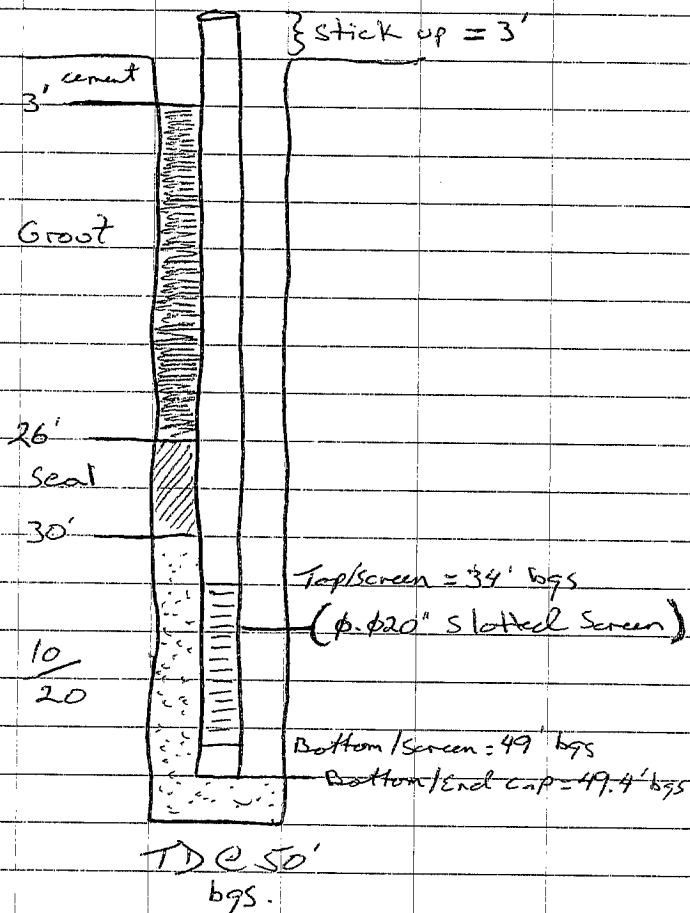 } stick up = 3'
cement
3'
Grout
26'
seal
30'
Top/screen = 34' bgs
(0.020" Slotted Screen)
10/20
Bottom/Screen = 49' bgs
Bottom/End cap = 49.4' bgs
TD @ 50'
bgs.